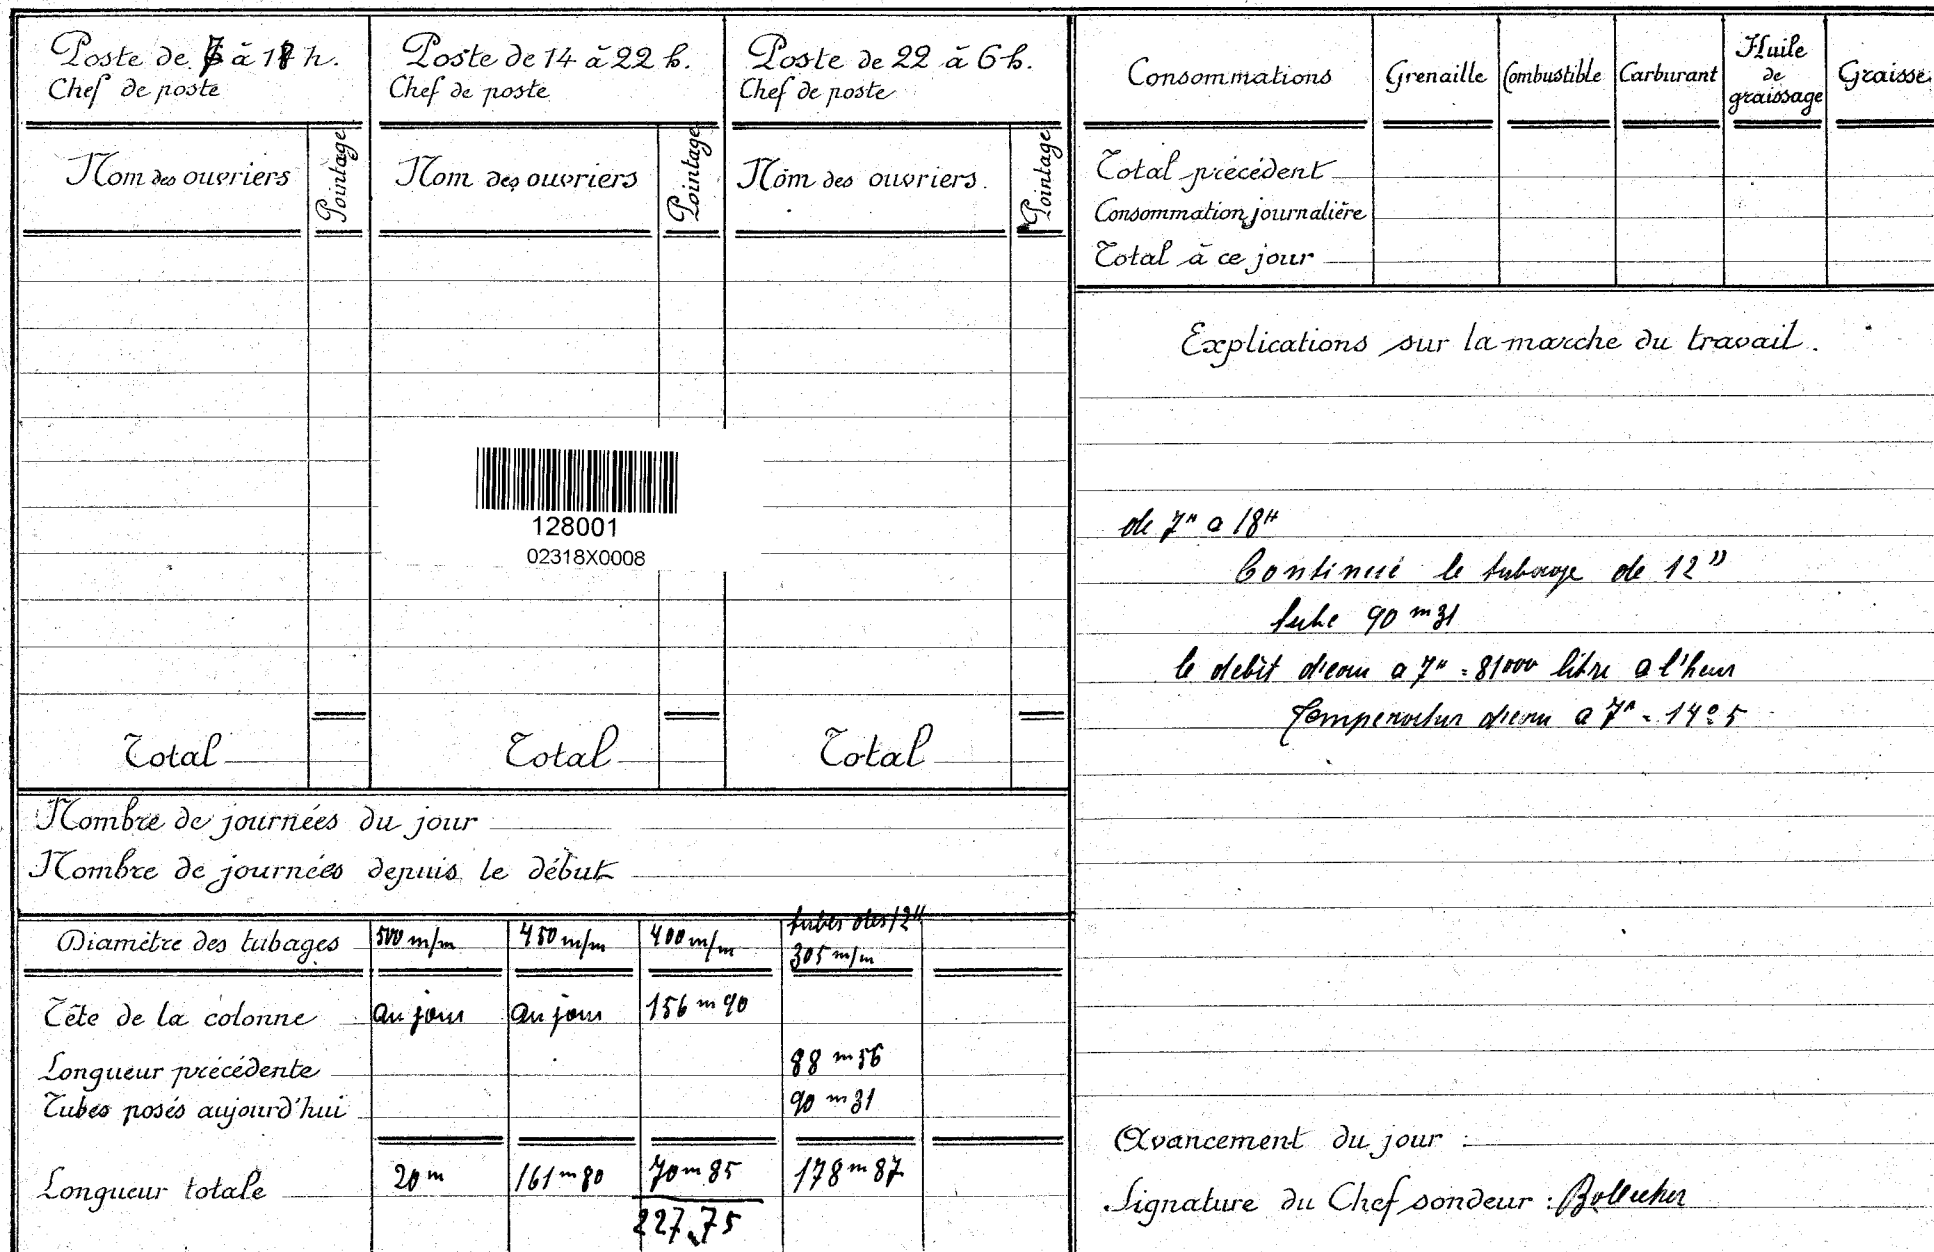 Poste de 7 à 18 h.
Chef de poste
Nom des ouvriers
Pointage
Total
Poste de 14 à 22 h.
Chef de poste
Nom des ouvriers
Pointage
Total
Poste de 22 à 6 h.
Chef de poste
Nom des ouvriers.
Pointage
Total
128001
02318X0008
Nombre de journées du jour
Nombre de journées depuis le début
Diamètre des tubages 500 m/m 450 m/m 400 m/m tubes des 12" 305 m/m
Tête de la colonne au jour au jour 156 m 90
Longueur précédente 88 m 56
Tubes posés aujourd'hui 90 m 31
Longueur totale 20 m 161 m 80 70 m 85 178 m 87
227,75
Consommations Grenaille Combustible Carburant Huile de graissage Graisse
Total précédent
Consommation journalière
Total à ce jour
Explications sur la marche du travail.
de 7 H a 18 H
Continué le tubage de 12"
tube 90 m 31
le debit d'eau a 7 H = 81000 litre a l'heur
Temperatur d'eau a 7 H = 14° 5
Avancement du jour :
Signature du Chef sondeur :